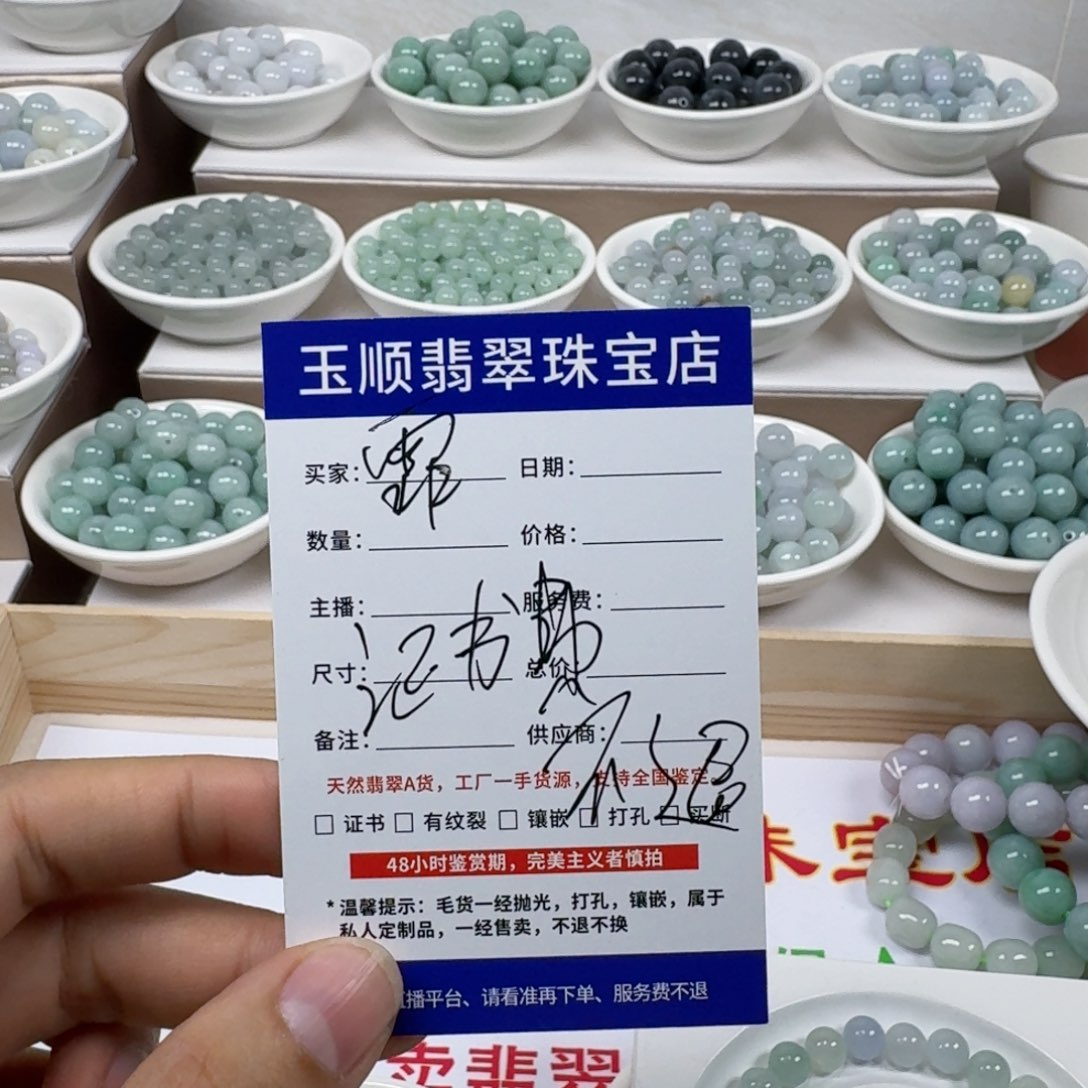 玉顺翡翠珠宝店
买家： 日期：
数量： 价格：
主播： 服务费：
证书费
尺寸： 总价
不退
备注： 供应商：
天然翡翠A货，工厂一手货源，支持全国鉴定。
□ 证书 □ 有纹裂 □ 镶嵌 □ 打孔 □ 买断
48小时鉴赏期，完美主义者慎拍
*温馨提示：毛货一经抛光，打孔，镶嵌，属于
私人定制品，一经售卖，不退不换
播平台、请看准再下单、服务费不退
珠宝店
卖翡翠